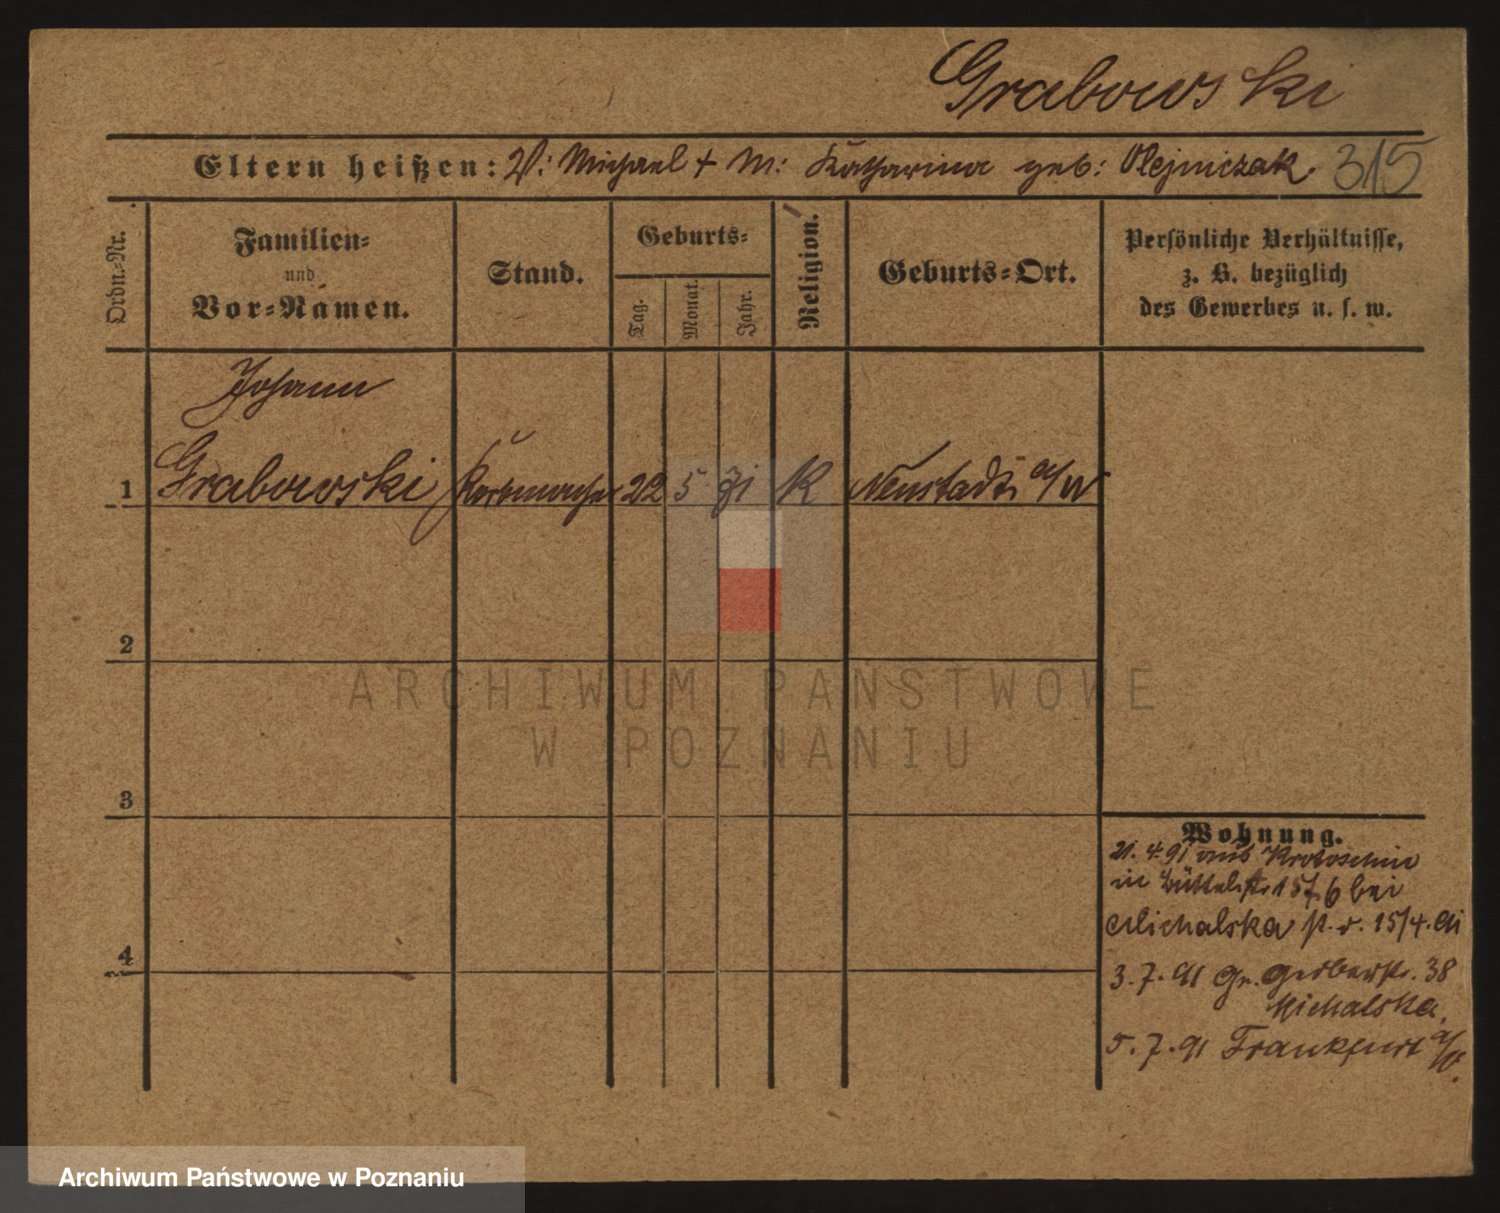 Grabowski
Eltern heißen: V: Michael + M: Katharina geb: Olejniczak. 315
Ordn.-Nr.
Familien-
und
Vor-Namen.
Stand.
Geburts-
Tag.
Monat.
Jahr.
Religion.
Geburts-Ort.
Persönliche Verhältnisse,
z. B. bezüglich
des Gewerbes u. s. w.
Johann
1 Grabowski Korbmacher 22 5 71 K Neustadt a/W
2
3
4
Wohnung.
21. 4. 91 aus Krotoschin
in Büttelstr 15/ 6 bei
Michalska p. r. 15/4. 91
3. 7. 91 Gr. Gerberstr. 38
Michalska.
5. 7. 91 Frankfurt a/O.
ARCHIWUM PAŃSTWOWE
W POZNANIU
Archiwum Państwowe w Poznaniu